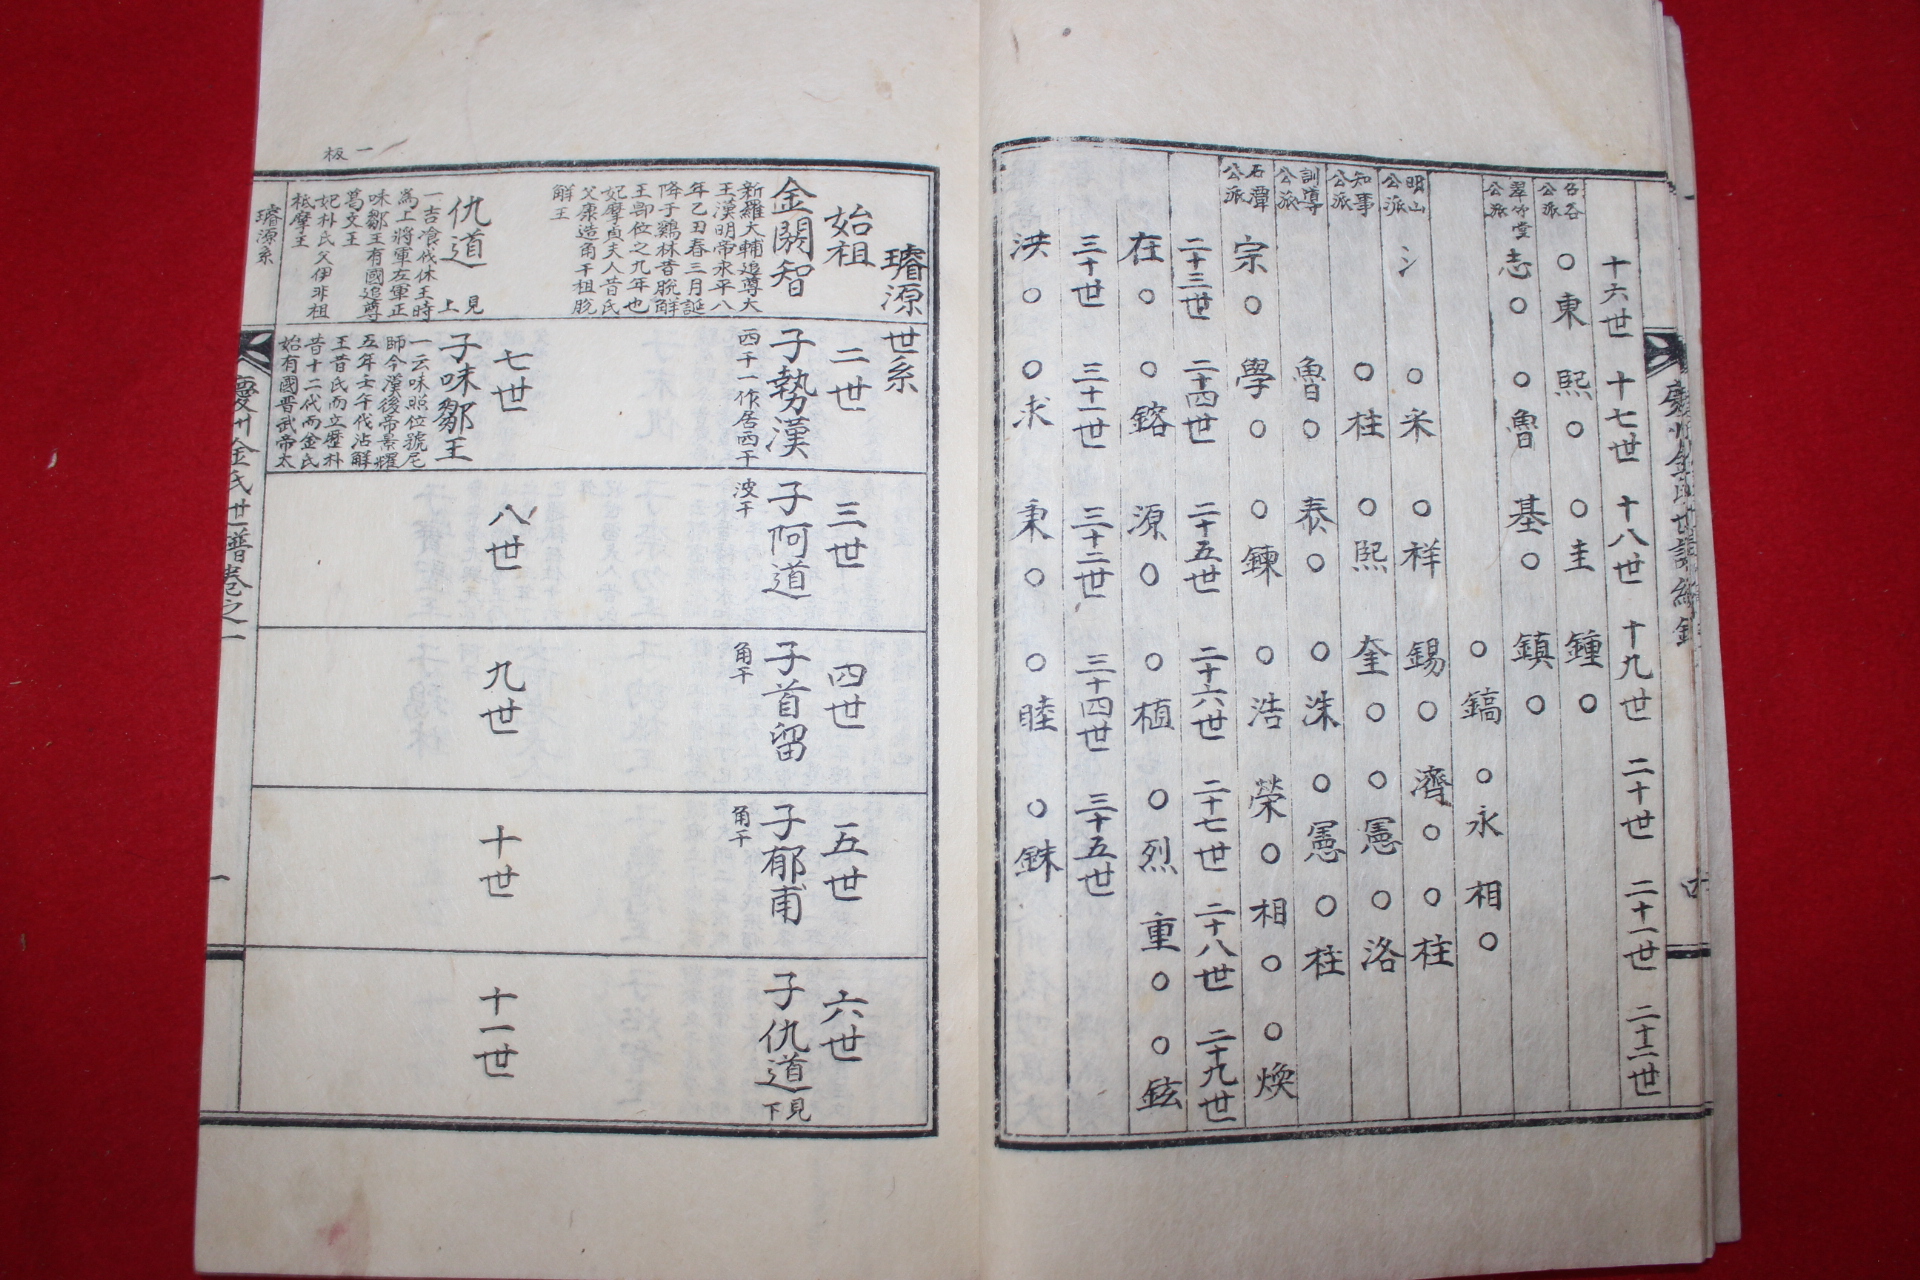 十六世 十七世 十八世 十九世 二十世 二十一世 二十二世
公派 ○東 熙○ ○圭 鍾○
翠竹堂公派 志○ ○魯 基○ 鎮○
○鎬 ○永 相○
明山公派 氵 ○米 ○祥 錫○ 濟○ ○柱
知事公派 ○柱 ○熙 奎○ ○憲 ○洛
訓導公派 魯○ 泰○ ○洙 ○憲 ○柱
石潭公派 宗○ 學○ ○鍊 ○浩 榮○ 相○ ○煥
二十三世 二十四世 二十五世 二十六世 二十七世 二十八世 二十九世
在○ ○鎔 源○ ○植 ○烈 重○ ○鉉
三十世 三十一世 三十二世 三十四世 三十五世
洪○ ○求 秉○ ○睦 ○銖
璿源世系
始祖 二世 三世 四世 五世 六世
金閼智
新羅大輔追尊大
王漢明帝永平八
年乙丑春三月誕
降于鷄林昔脫解
王卽位之九年也
妃摩貞夫人昔氏
父康造角干祖脫
解王
子勢漢
西干一作居西干
子阿道
波干
子首留
角干
子郁甫
角干
子仇道 見下
七世 八世 九世 十世 十一世
仇道 見上
一吉飡伐休王時
爲上將軍左軍正
味鄒王有國追尊
葛文王
妃朴氏父伊非祖
祗摩王
子味鄒王
一云味照位號尼
師今漢後帝景耀
五年壬午代沾解
王昔氏而立歷朴
昔十二代而金氏
始有國晋武帝太
一板
璿源系
慶州金氏世譜卷之一
一